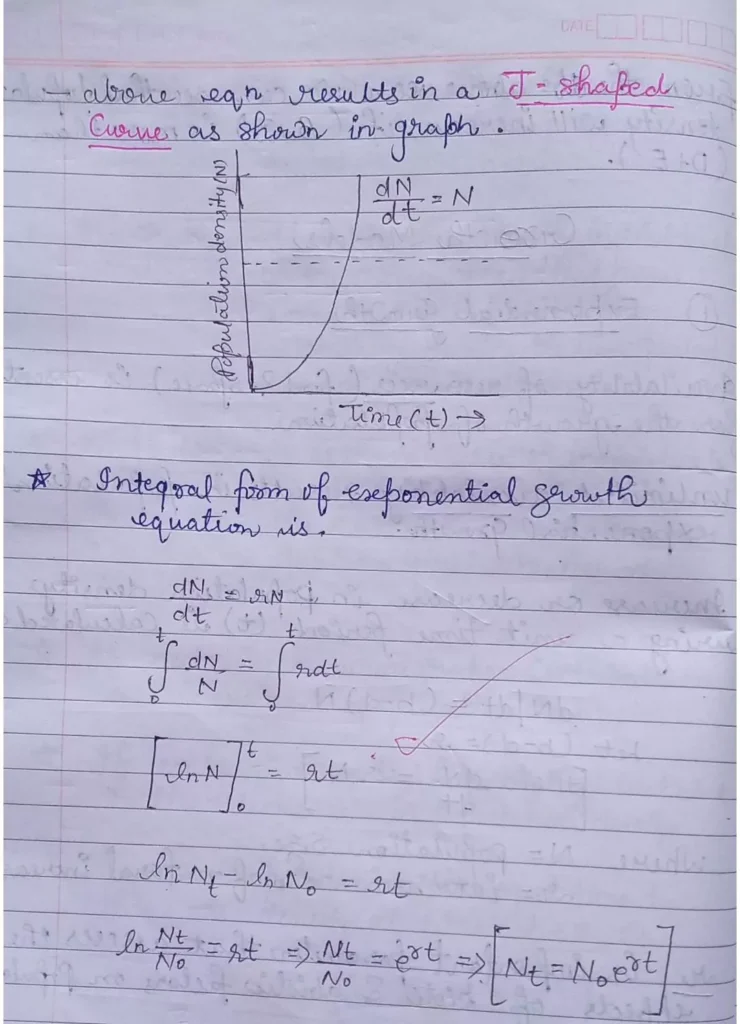 DATE
→ above eqn results in a J-shaped
Curve as shown in graph.
Population density (N)
dN/dt = N
Time (t) →
☆ Integral form of exponential growth
equation is.
dN/dt = rN
∫₀ᵗ dN/N = ∫₀ᵗ rdt
[ln N]₀ᵗ = rt
ln Nt - ln N₀ = rt
ln Nt/N₀ = rt ⇒ Nt/N₀ = e^rt ⇒ [Nt = N₀e^rt]